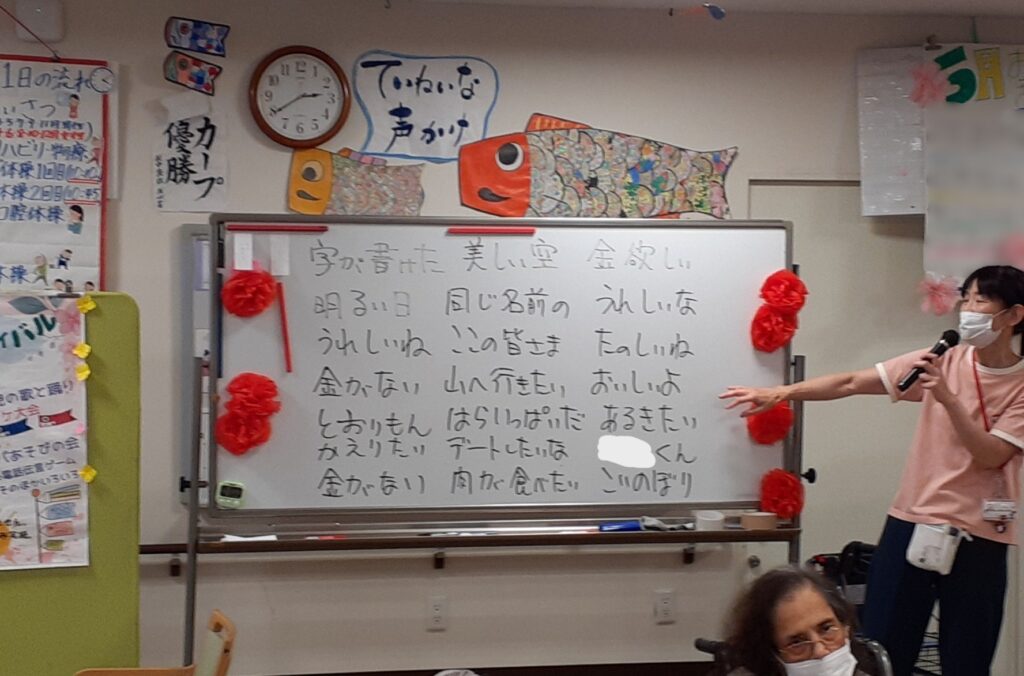 1日の流れ
カープ
優勝
ていねいな
声かけ
5月
字が書けた 美しい空 金欲しい
明るい日 同じ名前の うれしいな
うれしいね ここの皆さま たのしいね
金がない 山へ行きたい おいしいよ
とおりもん はらいっぱいだ あるきたい
かえりたい デートしたいな くん
金がない 肉が食べたい こいのぼり
体操1回目
体操2回目
口腔体操
バル
の歌と踊り
大会
あそびの会
電話伝言ゲーム
そのほかいろいろ